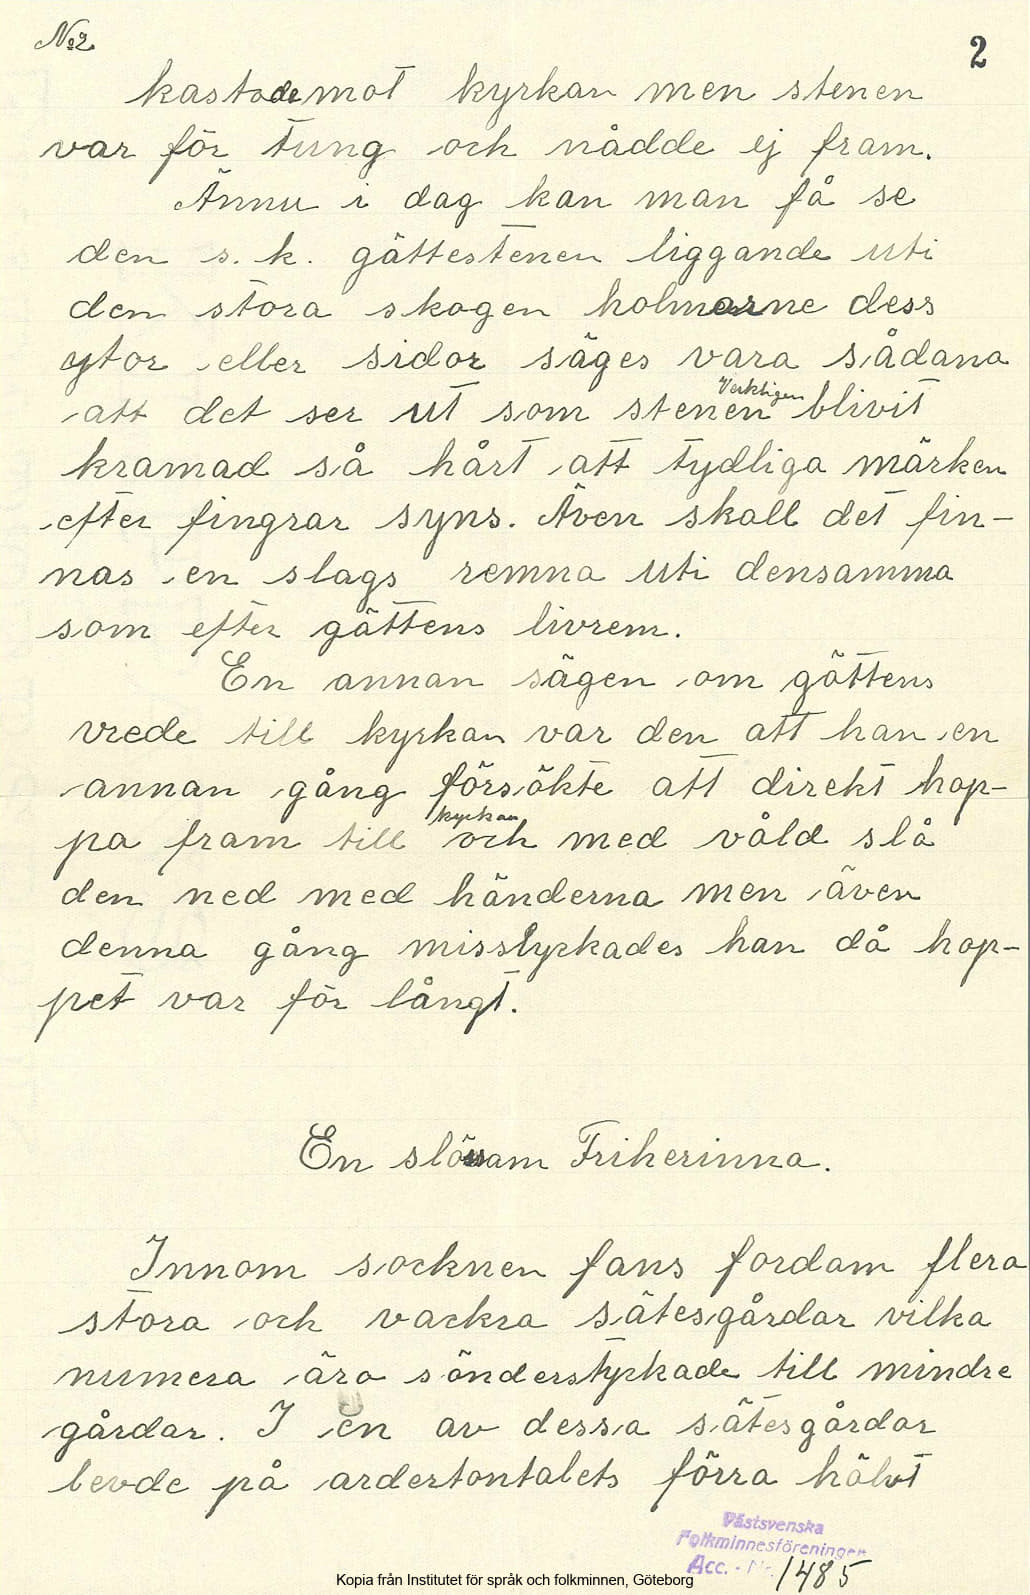 No 2. 2
kastade mot kyrkan men stenen
var för tung och nådde ej fram.
Ännu i dag kan man få se
den s. k. gättestenen liggande uti
den stora skogen holmarne dess
ytor eller sidor säges vara sådana
att det ser ut som stenen Verkligen blivit
kramad så hårt att tydliga märken
efter fingrar syns. Även skall det fin-
nas en slags remna uti densamma
som efter gättens livrem.
En annan sägen om gättens
vrede till kyrkan var den att han en
annan gång försökte att direkt hop-
pa fram till kyrkan och med våld slå
den ned med händerna men även
denna gång misslyckades han då hop-
pet var för långt.
En slösam Friherinna.
Innom socknen fans fordam flera
stora och vackra sätesgårdar vilka
numera ära sönderstyckade till mindre
gårdar. I en av dessa sätesgårdar
levde på adertontalets förra hälvt
Västsvenska
Folkminnesföreningen
Acc. - Nr. 1485
Kopia från Institutet för språk och folkminnen, Göteborg